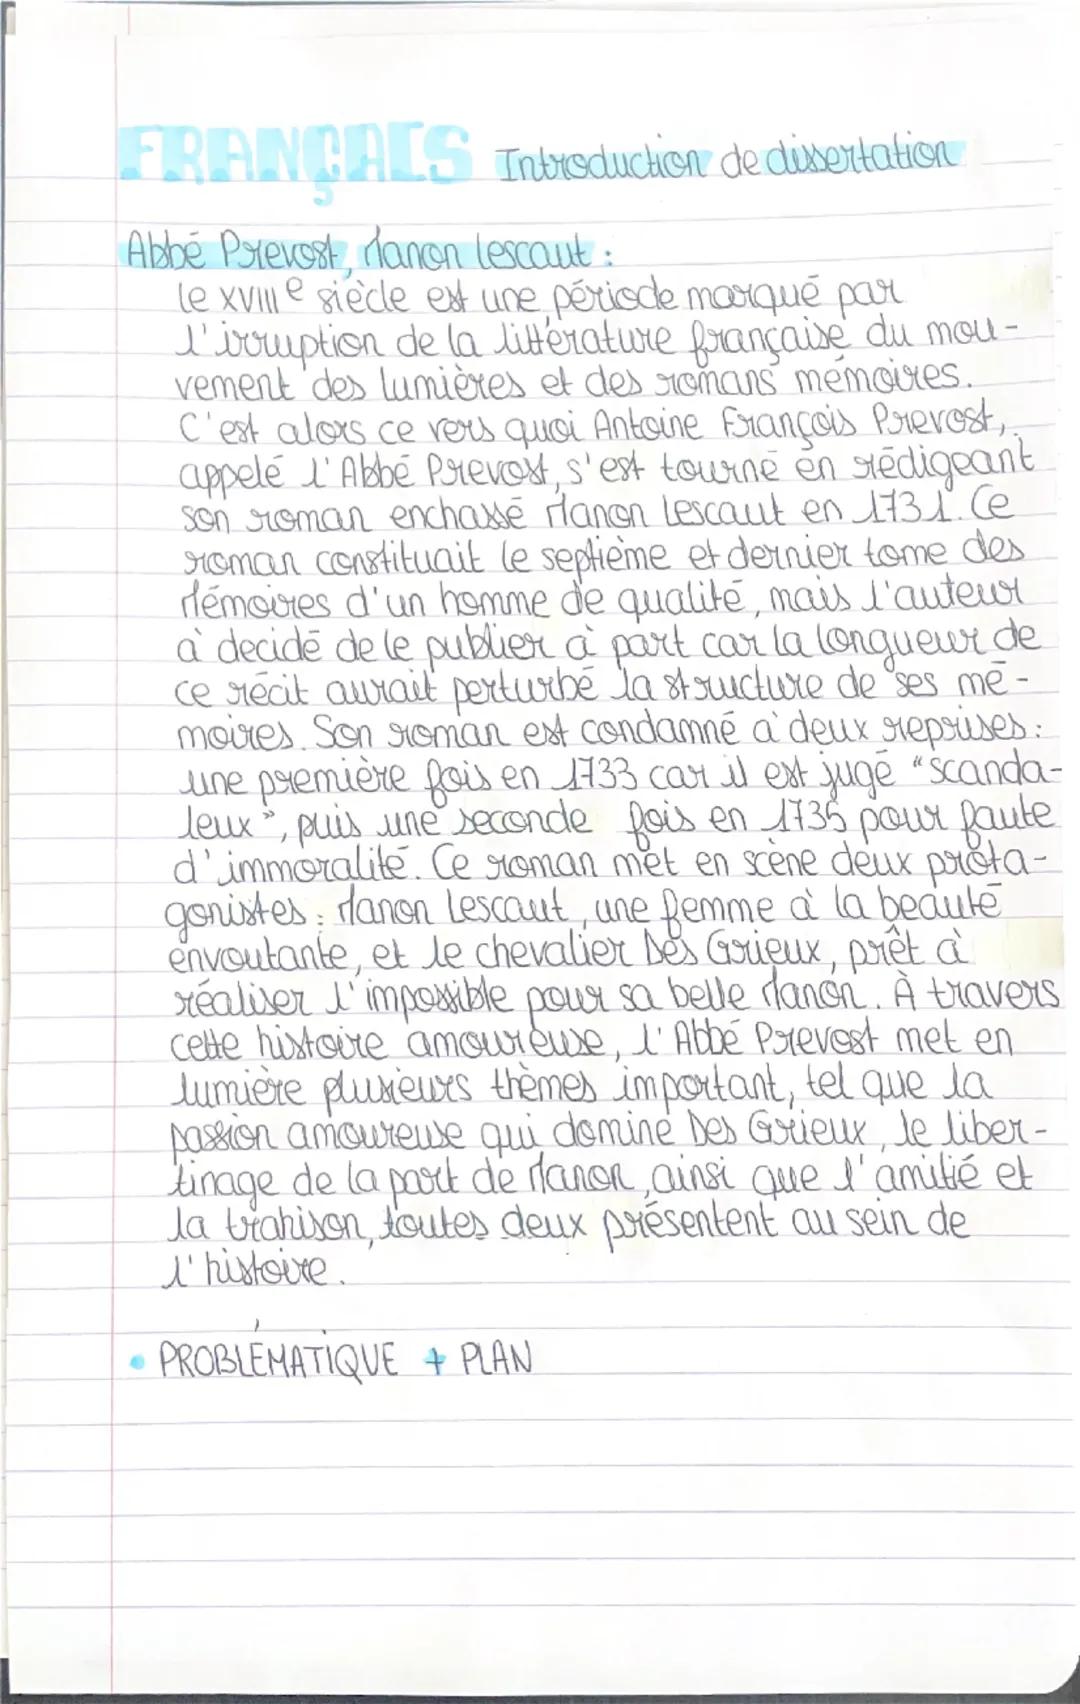 FRANÇAIS Introduction de dissertation
Abbé Prevost, Manon Lescaut :
Le XVIIIe siècle est une période marqué par
l'irruption de la littérature française du mou-
vement des lumières et des romans mémoires.
C'est alors ce vers quoi Antoine François Prevost,
appelé l'Abbé Prevost, s'est tourné en rédigeant
son roman enchassé Manon Lescaut en 1731. Ce
roman constituait le septième et dernier tome des
Mémoires d'un homme de qualité, mais l'auteur
à decidé de le publier à part car la longueur de
ce récit aurait perturbé la structure de ses mé-
moires. Son roman est condamné à deux reprises :
une première fois en 1733 car il est jugé "scanda-
leux", puis une seconde fois en 1735 pour faute
d'immoralité. Ce roman met en scène deux prota-
gonistes : Manon Lescaut, une femme à la beauté
envoutante, et le chevalier Des Grieux, prêt à
réaliser l'impossible pour sa belle Manon. À travers
cette histoire amoureuse, l'Abbé Prevost met en
lumière plusieurs thèmes important, tel que la
passion amoureuse qui domine Des Grieux, le liber-
tinage de la part de Manon, ainsi que l'amitié et
la trahison, toutes deux présentent au sein de
l'histoire.
• PROBLÉMATIQUE + PLAN